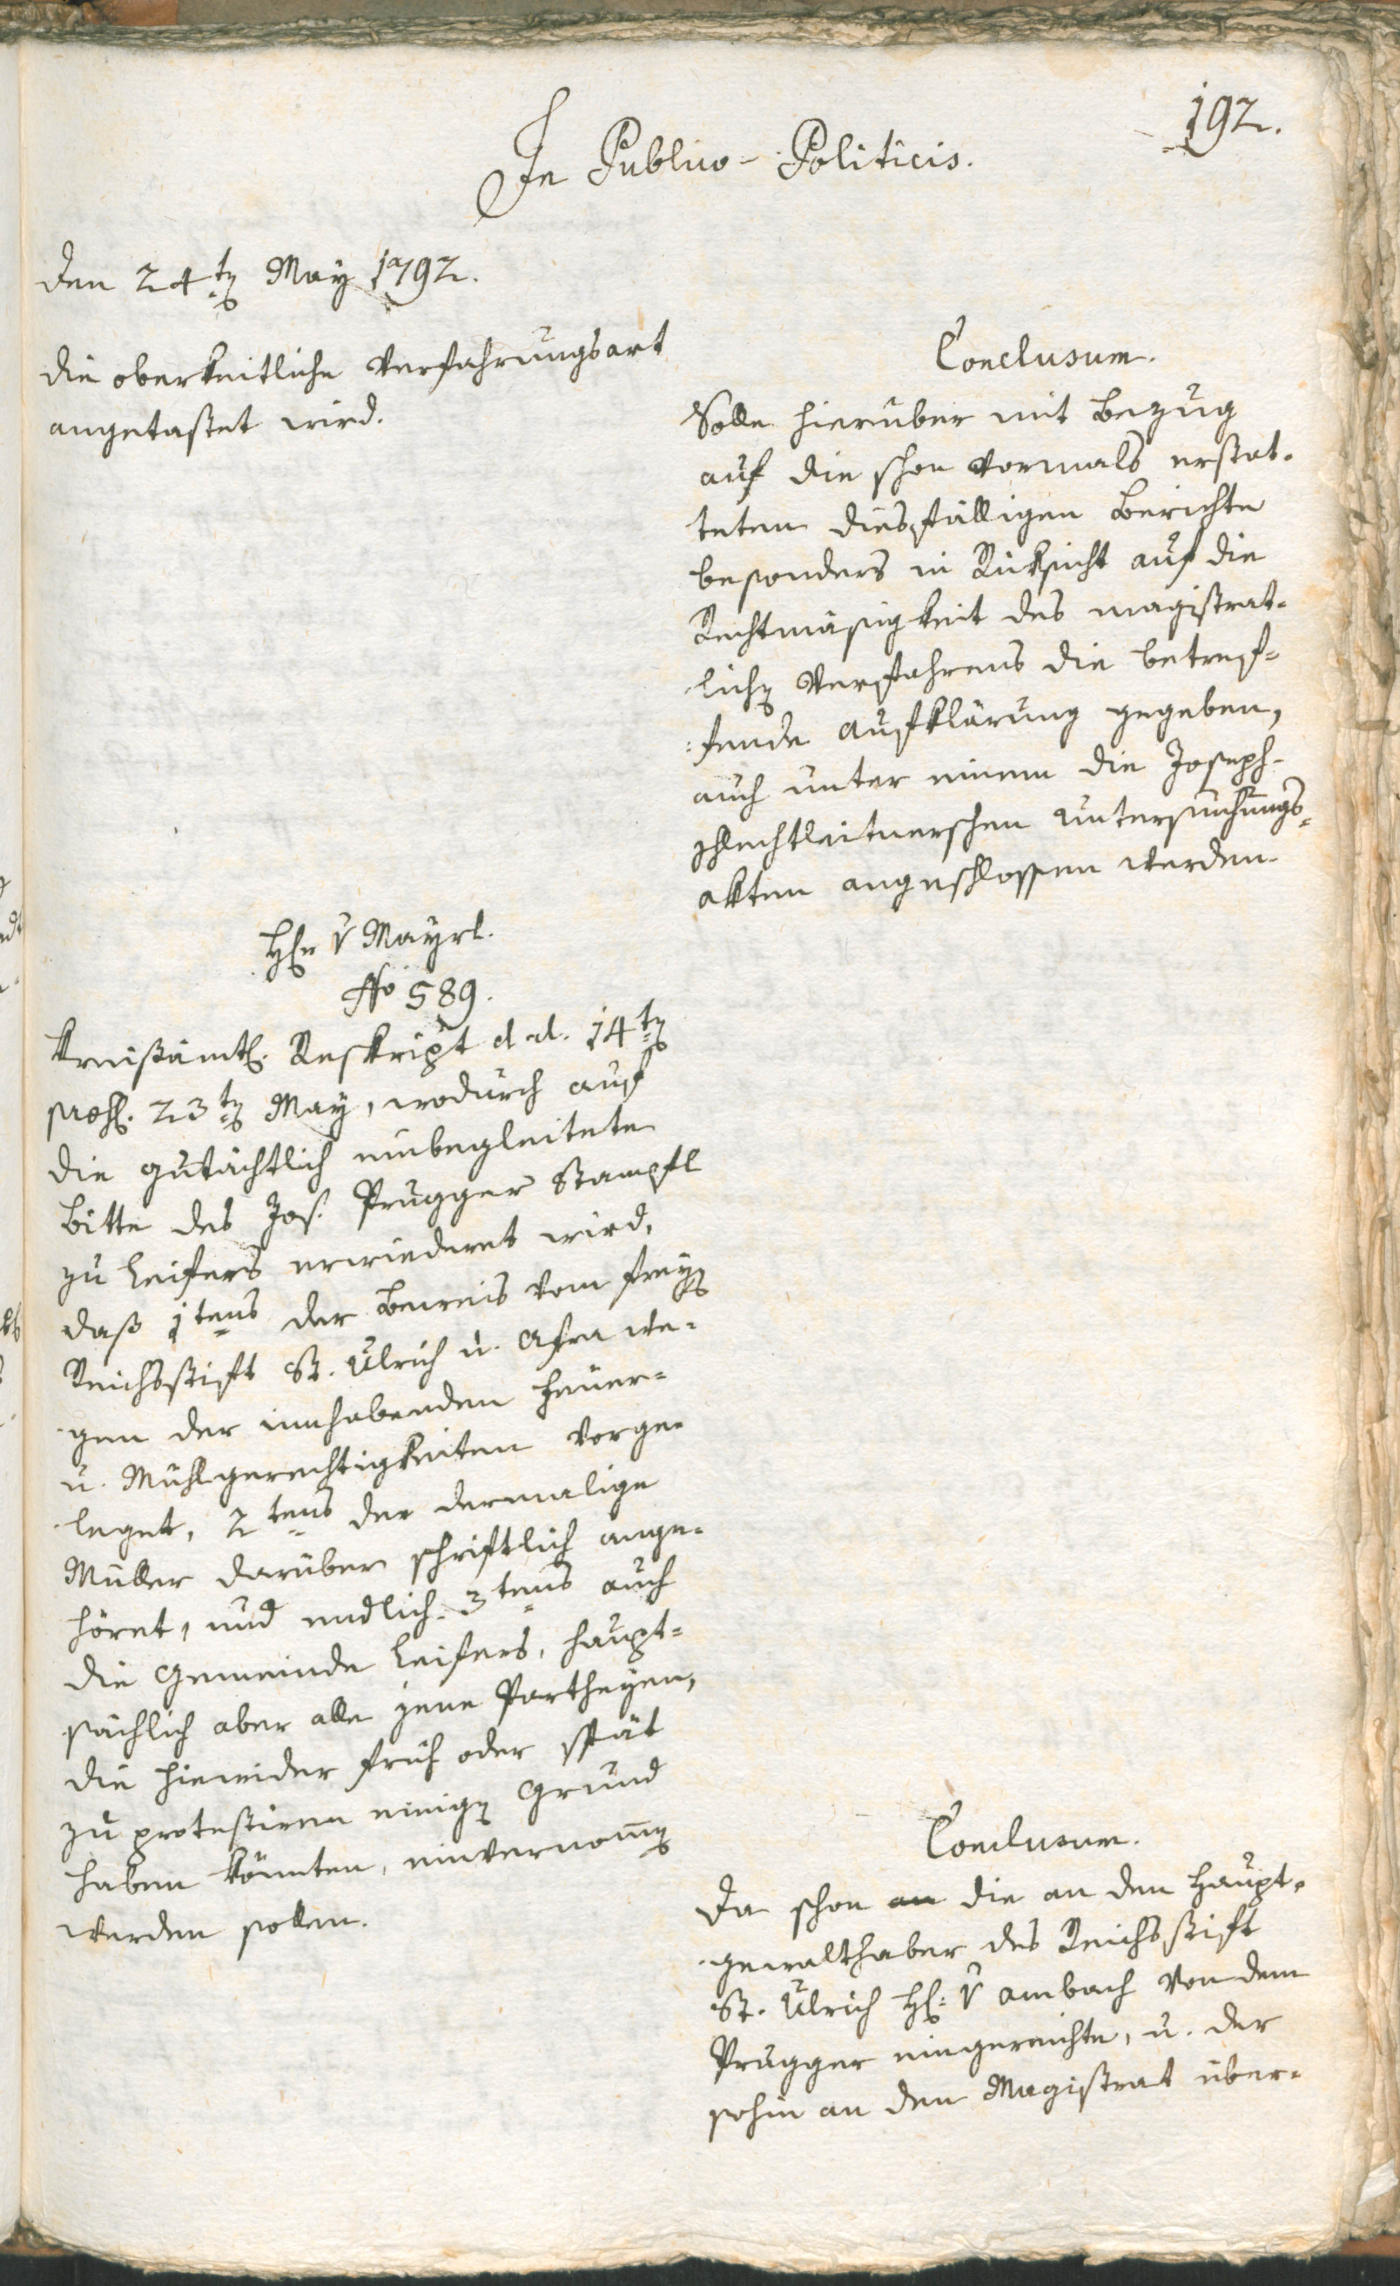 192.
In Publico-Politicis.
den 24tn May 1792.
die oberkeitliche Verfahrungsart
angetastet wird.
Conclusum.
Solle hierüber mit Bezug
auf die schon vormals erstat-
teten diesfälligen Berichte
besonders in Rüksicht auf die
Rechtmäsigkeit des magistrat-
lichn Verfahrens die betref-
fende Aufklärung gegeben,
auch unter einem die Joseph-
schlechtleitnerschen Untersuchungs-
akten angeschlossen werden.
Hn v Mayrl.
No 589.
Kreisämtl. Reskript d. d. 14tn
praes. 23tn May, wodurch auf
die gutächtlich einbegleitete
Bitte des Jos. Prugger Stampfl
zu Leifers erwiedert wird,
daß 1tens der Beweis vom freyn
Reichsstift St. Ulrich u. Afra we-
gen der innhabenden Feuer-
u. Mühlgerechtigkeiten vorge-
leget, 2tens der dermalige
Müller darüber schriftlich ange-
höret, und endlich 3tens auch
die Gemeinde Leifers, haupt-
sächlich aber alle jene Partheyen,
die hiewider früh oder spät
zu protestiren einign Grund
haben könnten, einvernom̄n
werden sollen.
Conclusum.
Da schon an die an den Haupt-
gewalthaber des Reichsstift
St. Ulrich H: v Ambach von dem
Prugger eingereichte, u. der
sohin an den Magistrat über-